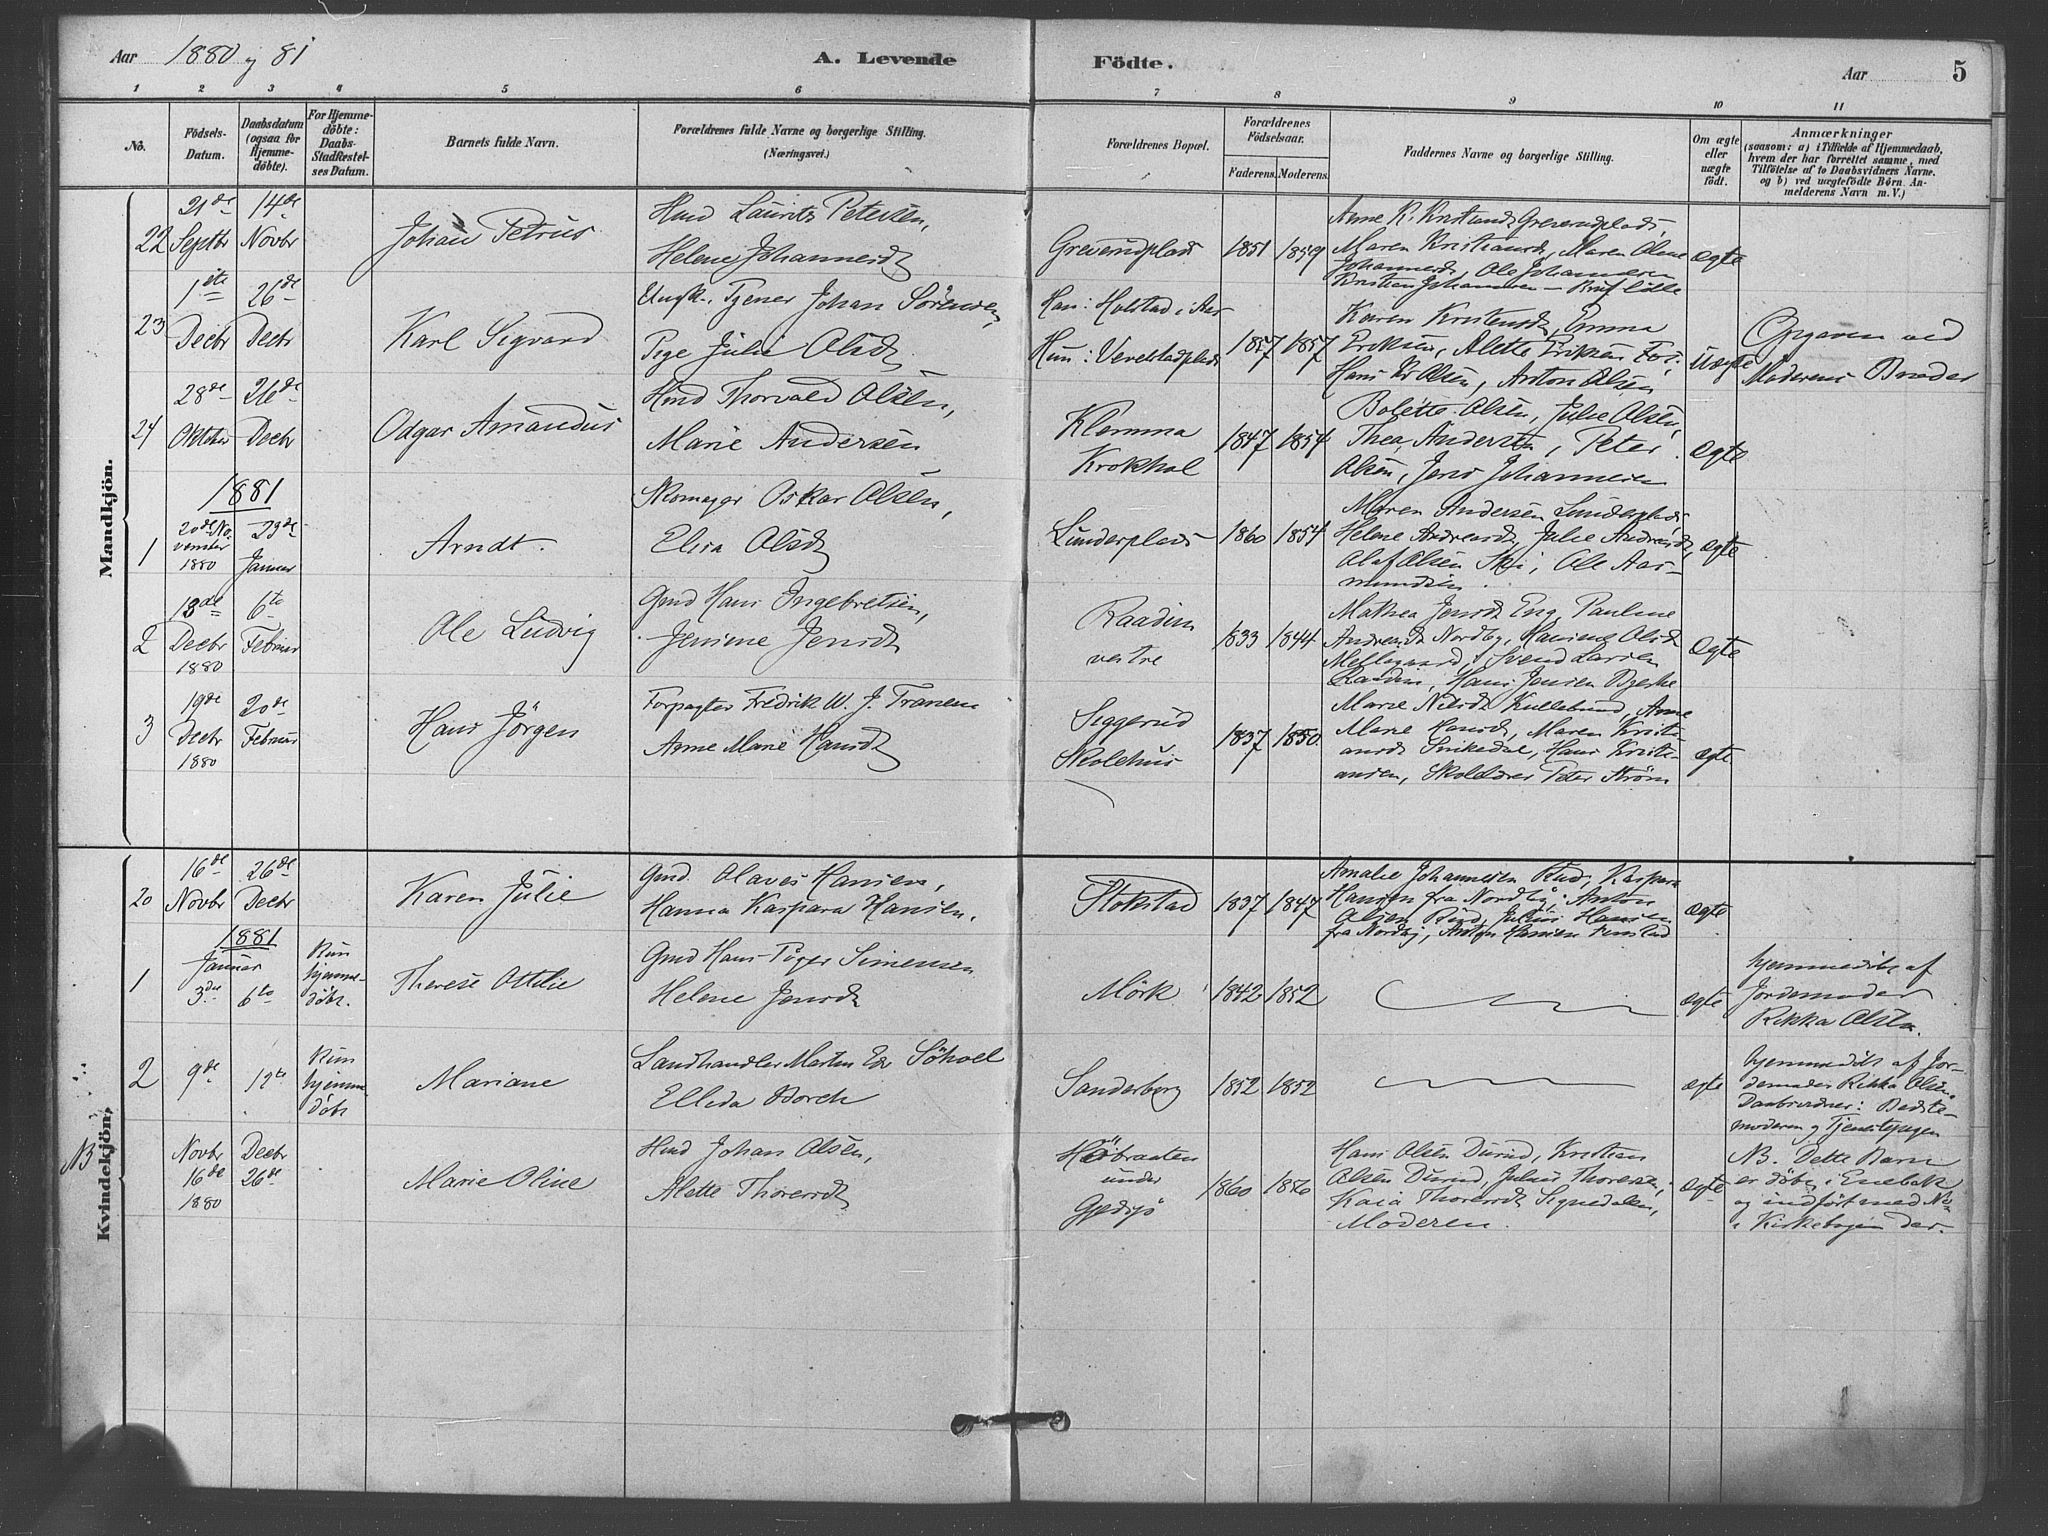 Aar 1880 og 81
A. Levende
Födte.
Aar
5
1 2 3 4 5 6 7 8 9 10 11
No.
Födsels-
Datum.
Daabsdatum
(ogsaa for
Hjemme-
döbte).
For Hjemme-
döbte:
Daabs-
Stadfæstel-
ses Datum.
Barnets fulde Navn.
Forældrenes fulde Navne og borgerlige Stilling.
(Næringsvei.)
Forældrenes Bopæl.
Forældrenes
Födselsaar.
Faderens. Moderens.
Faddernes Navne og borgerlige Stilling.
Om ægte
eller
uægte
födt.
Anmærkninger
(saasom: a) i Tilfælde af Hjemmedaab,
hvem der har forrettet samme, med
Tilföielse af to Daabsvidners Navne.
og b) ved uægtefödte Börn An-
melderens Navn m. V.)
Mandkjön.
22
21de
Septbr
14de
Novbr
Johan Petrus
Hmd Laurits Petersen,
Helene Johannesdt
Greverudplads
1851 1859
Maren Kristiansdt, Maren Oline
Johannesdt, Ole Johannesen
Kristian Johannesen
Ægte
23
1ste
Decbr
26de
Decbr
Karl Sigvard
Ungk. Tjener Johan Sörensen,
Pige Julie Olsdt
Han: Holstad i Aas
Hun: Vevelstadplads
1857 1857
Karen Kristensdt, Emma
Eriksen, Alette Eriksen
Hans Kr Olsen, Anton Olsen
Uægte
Opgaven ved
Moderens Broder
24
28de
Oktober
26de
Decbr
Odgar Amandus
Hmd Thorvald Olsen,
Marie Andersen
Klemma
Krokhol
1847 1854
Bolette Olsen, Julie Olsen,
Thea Andersen, Peter
Olsen, Jens Johannesen
Ægte
1881
1
20de No-
vember
1880
23de
Januar
Arndt.
Skomager Oskar Olsen,
Elisa Olsdt
Lunderplads
1860 1854
Maren Andersen Lunderplads,
Helene Andreasdt, Julie Andreasdt,
Olaf Olsen Ski, Ole Aas-
mundsen.
Ægte
2
13de
Decbr
1880
6te
Februar
Ole Ludvig
Gmd Hans Ingebretsen,
Jensine Jensdt
Raaden
vestre
1833 1844
Mathea Jensdt Eng, Pauline
Andreasdt Nordby, Hansine Olsdt
Mellegaard, Svend Larsen
Raaden, Hans Jensen
Ægte
3
19de
Decbr
1880
20de
Februar
Hans Jörgen
Forpagter Fredrik W. J. Tranem
Anne Marie Hansdt
Siggerud
Skolehus
1837 1850
Marie Nilsdt Kullebund, Anne
Marie Hansdt, Maren Kristi-
ansdt, Hans Kristi-
ansen, Skolelærer Peter Ström
Ægte
Kvindekjön.
20
16de
Novbr
26de
Decbr
Karen Julie
Gmd. Olaves Hansen,
Hanna Kaspara Hansen.
Stokstad
1837 1847
Amalie Johannesen Rud, Kaspara
Hansen fra Nordby, Anton
Olsen Rud, Julius Hansen
fra Nordby, Anton Hansen Finstad
Ægte
1881
1
Januar
3die
6te
Kun
hjemme-
döbt.
Therese Ottilie
Gmd Hans Piger Simensen
Helene Jensdt
Mörk
1842 1852
Ægte
hjemmedöbt af
Jordemoder
Rikka Olsen.
2
9de
12te
Kun
hjemme
döbt
Mariane
Landhandler Martin Edv Söhoel
Ellida Borch
Sanderborg
1852 1852
Ægte
hjemmedöbt af Jor-
demoder Rikka Olsen.
Daabsvidner: Bedste-
moderen og Tjenestepigen
NB
Novbr
16de
1880
Decbr
26de
Marie Oline
Hmd Johan Olsen,
Alette Thoresdt
under
Gjedsjö
1860 1856
Hans Olsen Durud, Kristian
Olsen Durud, Julius Thoresen,
Kaia Thoresdt Signedalen,
Moderen.
Ægte
NB. Dette Barn
er döbt i Enebak
og indfört med No
i Kirkebogen der.